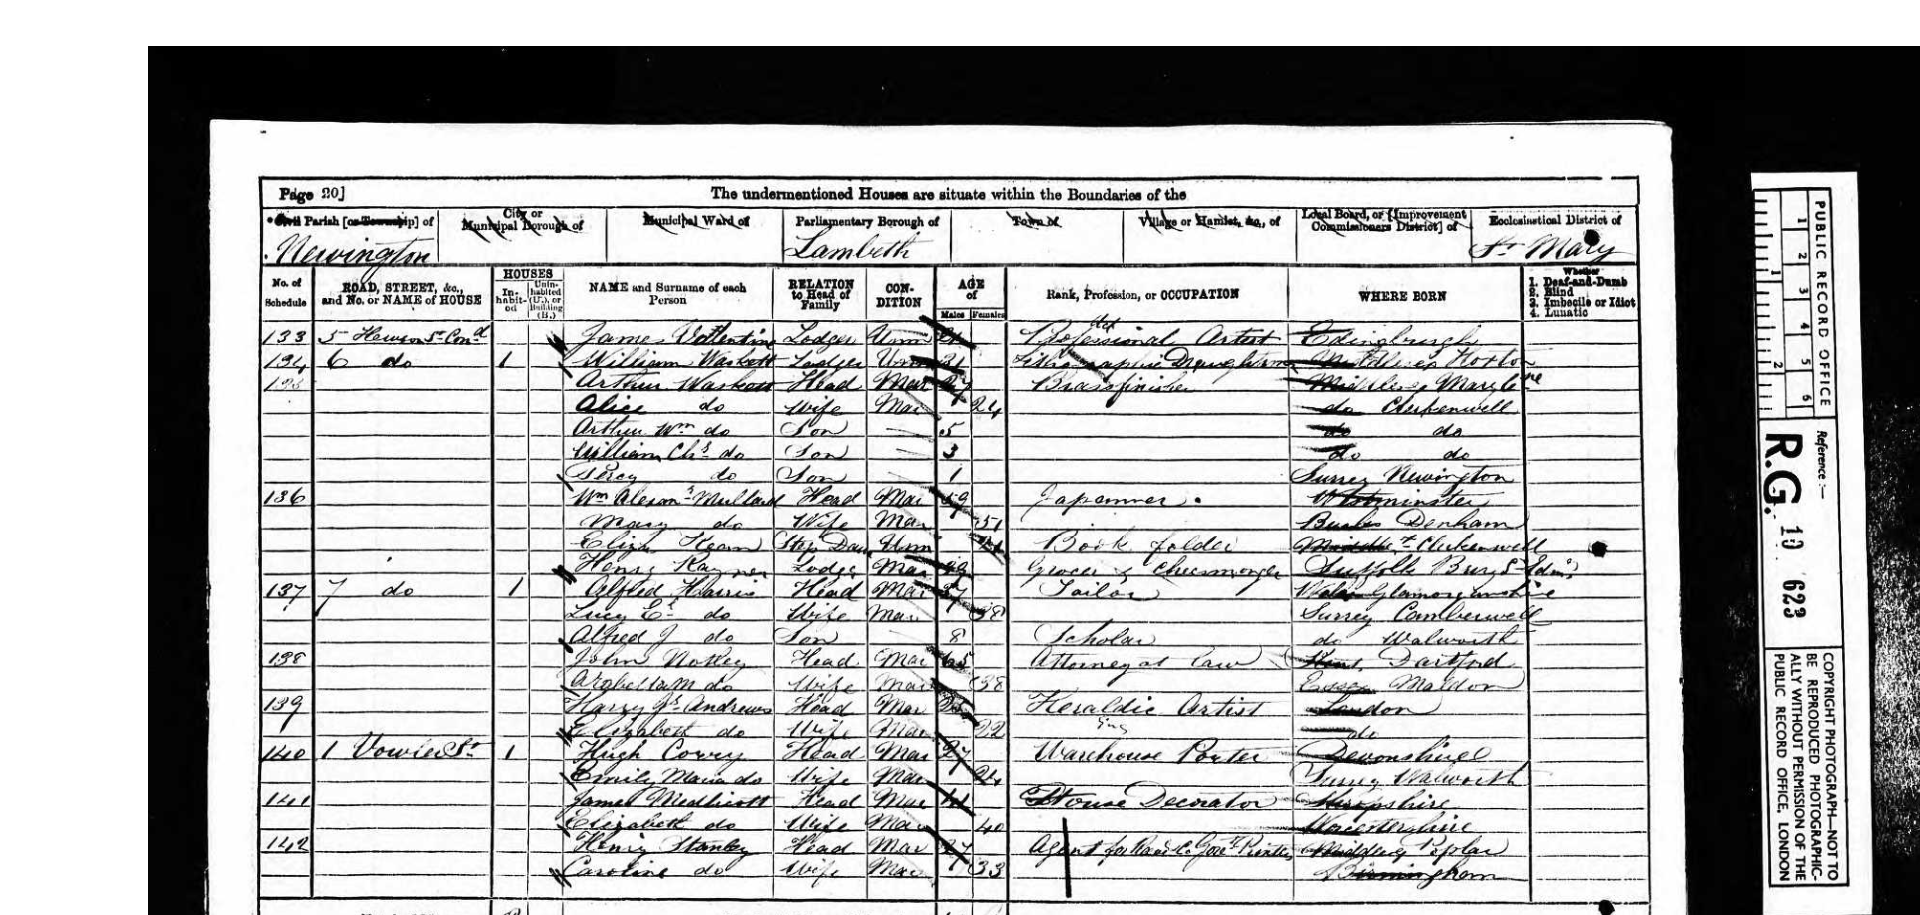 Page 20]
The undermentioned Houses are situate within the Boundaries of the
Civil Parish [or Township] of City or Municipal Borough of Municipal Ward of Parliamentary Borough of Town of Village or Hamlet, &c., of Local Board, or [Improvement Commissioners District] of Ecclesiastical District of
Newington Lambeth St Mary
No. of Schedule ROAD, STREET, &c., and No. or NAME of HOUSE HOUSES Inhabited Uninhabited (U.), or Building (B.) NAME and Surname of each Person RELATION to Head of Family CONDITION AGE of Males Females Rank, Profession, or OCCUPATION WHERE BORN Whether 1. Deaf-and-Dumb 2. Blind 3. Imbecile or Idiot 4. Lunatic
133 5 St Cond James Lodger Unm Professional Artist Edinburgh
134 6 do 1 William Waskett Lodger Unm 21 Hoxton
Arthur Waskett Head Mar 27 Brassfinisher
Alice do Wife Mar 24 do Clerkenwell
Arthur Wm do Son 5 do do
William Chs do Son 3 do do
Percy do Son 1 Surrey Newington
136 Wm Mullard Head Mar 59 Japanner Westminster
Mary do Wife Mar 51 Bucks Denham
Eliza Step Daur Unm Book folder Clerkenwell
Henry Lodger Mar Grocer & Cheesmonger Suffolk Bury St Edms
137 7 do 1 Alfred Harris Head Mar 37 Tailor Wales Glamorganshire
Lucy do Wife Mar 38 Surrey Camberwell
Alfred J do Son 8 Scholar do Walworth
138 John Notley Head Mar Attorney at law Kent Dartford
Arabella M do Wife Mar 38 Essex Maldon
139 Harry Andrews Head Mar Heraldic Artist London
Elizabeth do Wife Mar 22 do
140 1 Vowler St 1 Hugh Head Mar 27 Warehouse Porter Devonshire
Emily Maria do Wife Mar 24 Surrey Walworth
141 James Medlicott Head Mar 41 House Decorator Shropshire
Elizabeth do Wife Mar 40 Worcestershire
142 Henry Stanley Head Mar Agent for Poplar
Caroline do Wife Mar 33 Birmingham
PUBLIC RECORD OFFICE
1 2 3 4 5 6
1 2
Reference:-
R.G. 10 623
COPYRIGHT PHOTOGRAPH—NOT TO
BE REPRODUCED PHOTOGRAPHIC-
ALLY WITHOUT PERMISSION OF THE
PUBLIC RECORD OFFICE, LONDON